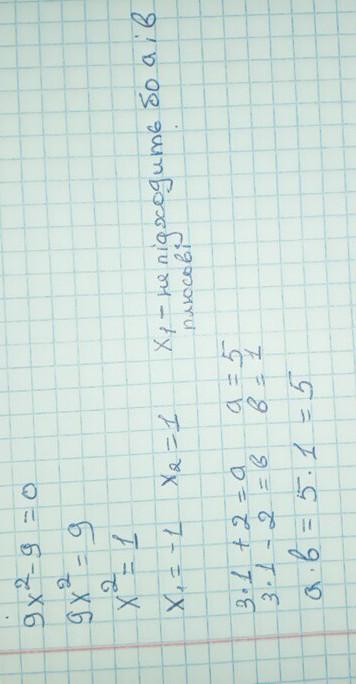 9x² - 9 = 0
9x² = 9
x² = 1
x₁ = -1 x₂ = 1 x₁ - не підходить бо а і в
плюсові
3·1 + 2 = а а = 5
3·1 - 2 = в в = 1
а·в = 5·1 = 5